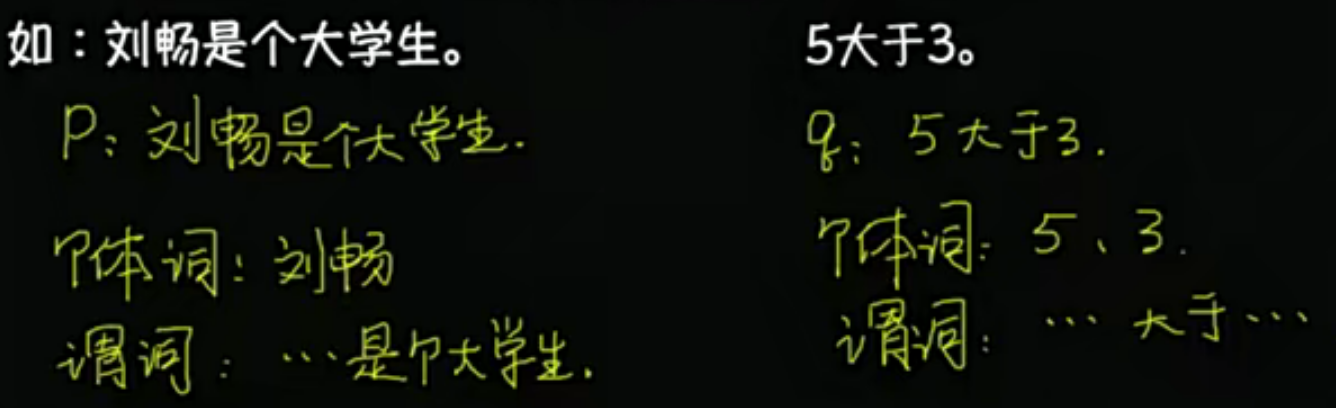 如：刘畅是个大学生。
P：刘畅是个大学生.
个体词：刘畅
谓词：…是个大学生.
5大于3。
q：5大于3.
个体词：5、3.
谓词：…大于…